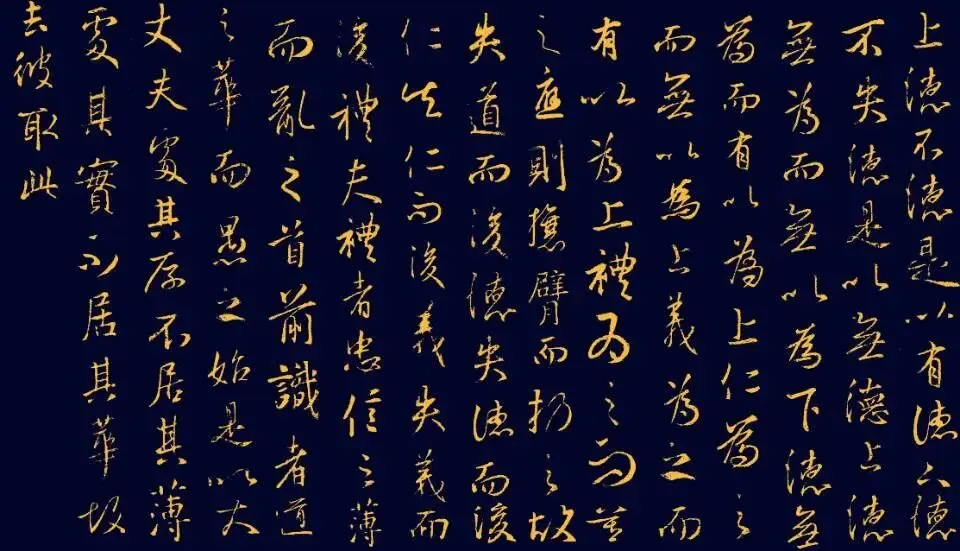 上德不德是以有德下德
不失德是以無德上德
無為而無以為下德無
為而有以為上仁為之
而無以為上義為之而
有以為上禮為之而莫
之應則攘臂而扔之故
失道而後德失德而後
仁失仁而後義失義而
後禮夫禮者忠信之薄
而亂之首前識者道
之華而愚之始是以大
丈夫處其厚不居其薄
處其實不居其華故
去彼取此